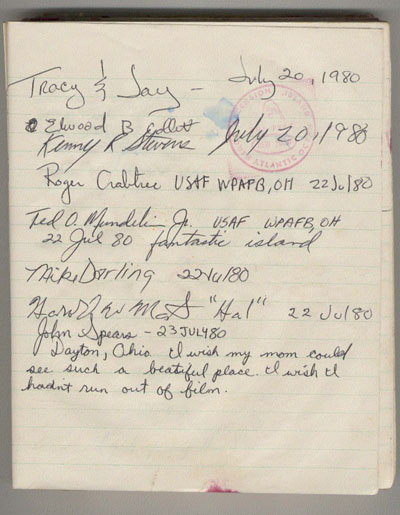 Tracy & Jay — July 20, 1980
Elwood B Collett
Kenny R Stevens July 20, 1980
Roger Crabtree USAF WPAFB, OH 22 Jul 80
Ted O. Mundelein Jr. USAF WPAFB, OH
22 Jul 80 fantastic island
Mike Dorling 22 Jul 80
"Hal" 22 Jul 80
John Spears - 23 JULY 80
Dayton, Ohio I wish my mom could
see such a beatiful place. I wish I
hadn't run out of film.
ATLANTIC OC